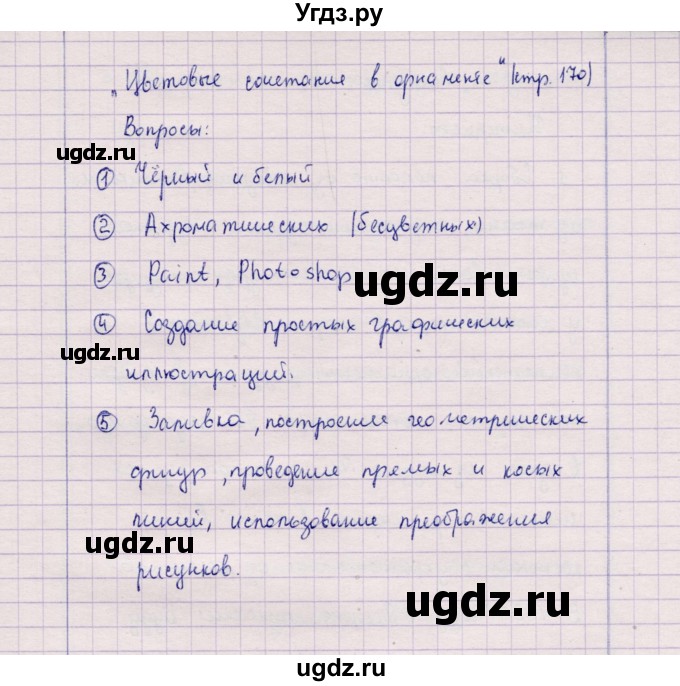 Угдз.ру
„Цветовые сочетание в орнаменте" (стр. 170)
Вопросы:
ugdz.ru
ugdz.ru
① Чёрный и белый
② Ахроматических (бесцветных)
③ Paint, Photoshop
ugdz.ru
④ Создание простых графических
ugdz.ru
иллюстраций.
⑤ Заливка, построение геометрических
фигур, проведение прямых и косых
линий, использование преображения
ugdz.ru
рисунков.
ugdz.ru
ugdz.ru